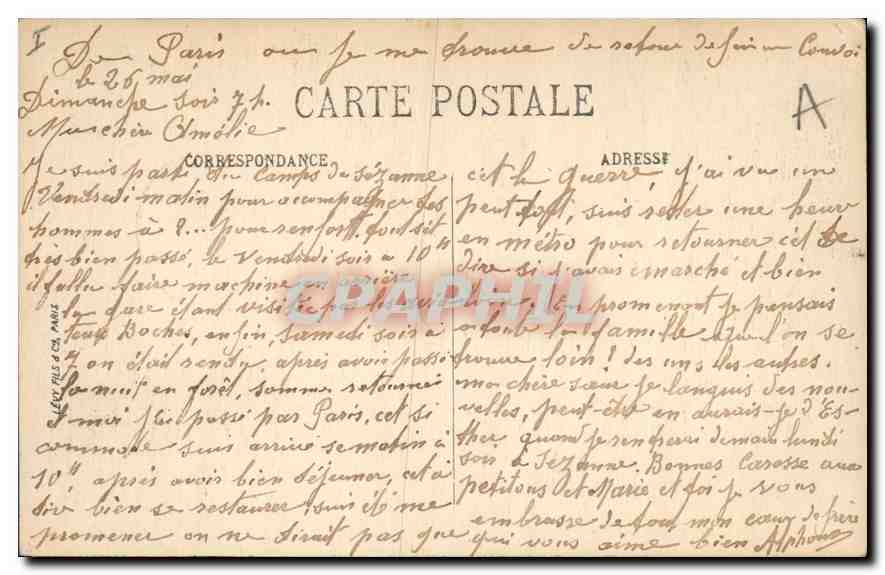 I
De Paris ou je me trouve de retour de fin Convoi
le 26 mai
Dimanche soir 7 h.
CARTE POSTALE
A
Ma chère Amélie
CORRESPONDANCE
ADRESSE
Je suis parti du Camps de Sézanne
Vendredi matin pour accompagner des
hommes à ?... pour renfort. tout s'ét
très bien passé, le Vendredi soir à 10"
il fallu faire machine en arrière
la gare étant visitée par
Boches, enfin, samedi soir à
7 on était rendu, après avoir passé
la nuit en forêt, somme retourner
moi j'ai passé par Paris, cet si
commode suis arrivé se matin à
10" après avoir bien déjeuner, cet à
dire bien se restaurer suis été me
promener on ne dirait pas que
cet la guerre, j'ai vu un
peut tout, suis rester une heure
en métro pour retourner cet te
dire si j'avais marché et bien
promenant je pensais
a toute la famille que l'on se
trouve loin! des uns les autres.
ma chère sœur je languis des nou-
velles, peut-être en aurais-je d'Es-
ther, quand je rendrerai demain lundi
soir à Sézanne. Bonnes Caresse aux
petitous et Marie et toi je vous
embrasse de tout mon cœur de frère
qui vous aime bien Alphonse
LÉVY FILS & Cie, PARIS
CPAPHIL